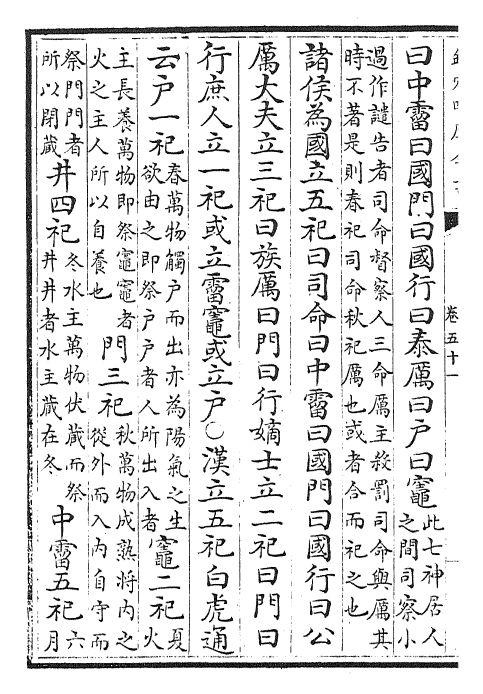 卷五十一
曰中霤曰國門曰國行曰泰厲曰户曰竈此七神居人之間司察小
過作譴告者司命督察人三命厲主殺罰司命與厲其
時不著是則春祀司命秋祀厲也或者合而祀之也
諸侯為國立五祀曰司命曰中霤曰國門曰國行曰公
厲大夫立三祀曰族厲曰門曰行嫡士立二祀曰門曰
行庶人立一祀或立霤竈或立户○漢立五祀白虎通
云户一祀春萬物觸户而出亦為陽氣之生欲由之即祭户户者人所出入者竈二祀夏火
主長養萬物即祭竈竈者火之主人所以自養也門三祀秋萬物成熟將内之從外而入内自守而
祭門門者所以閉藏井四祀冬水主萬物伏藏而祭井井者水主藏在冬中霤五祀六月